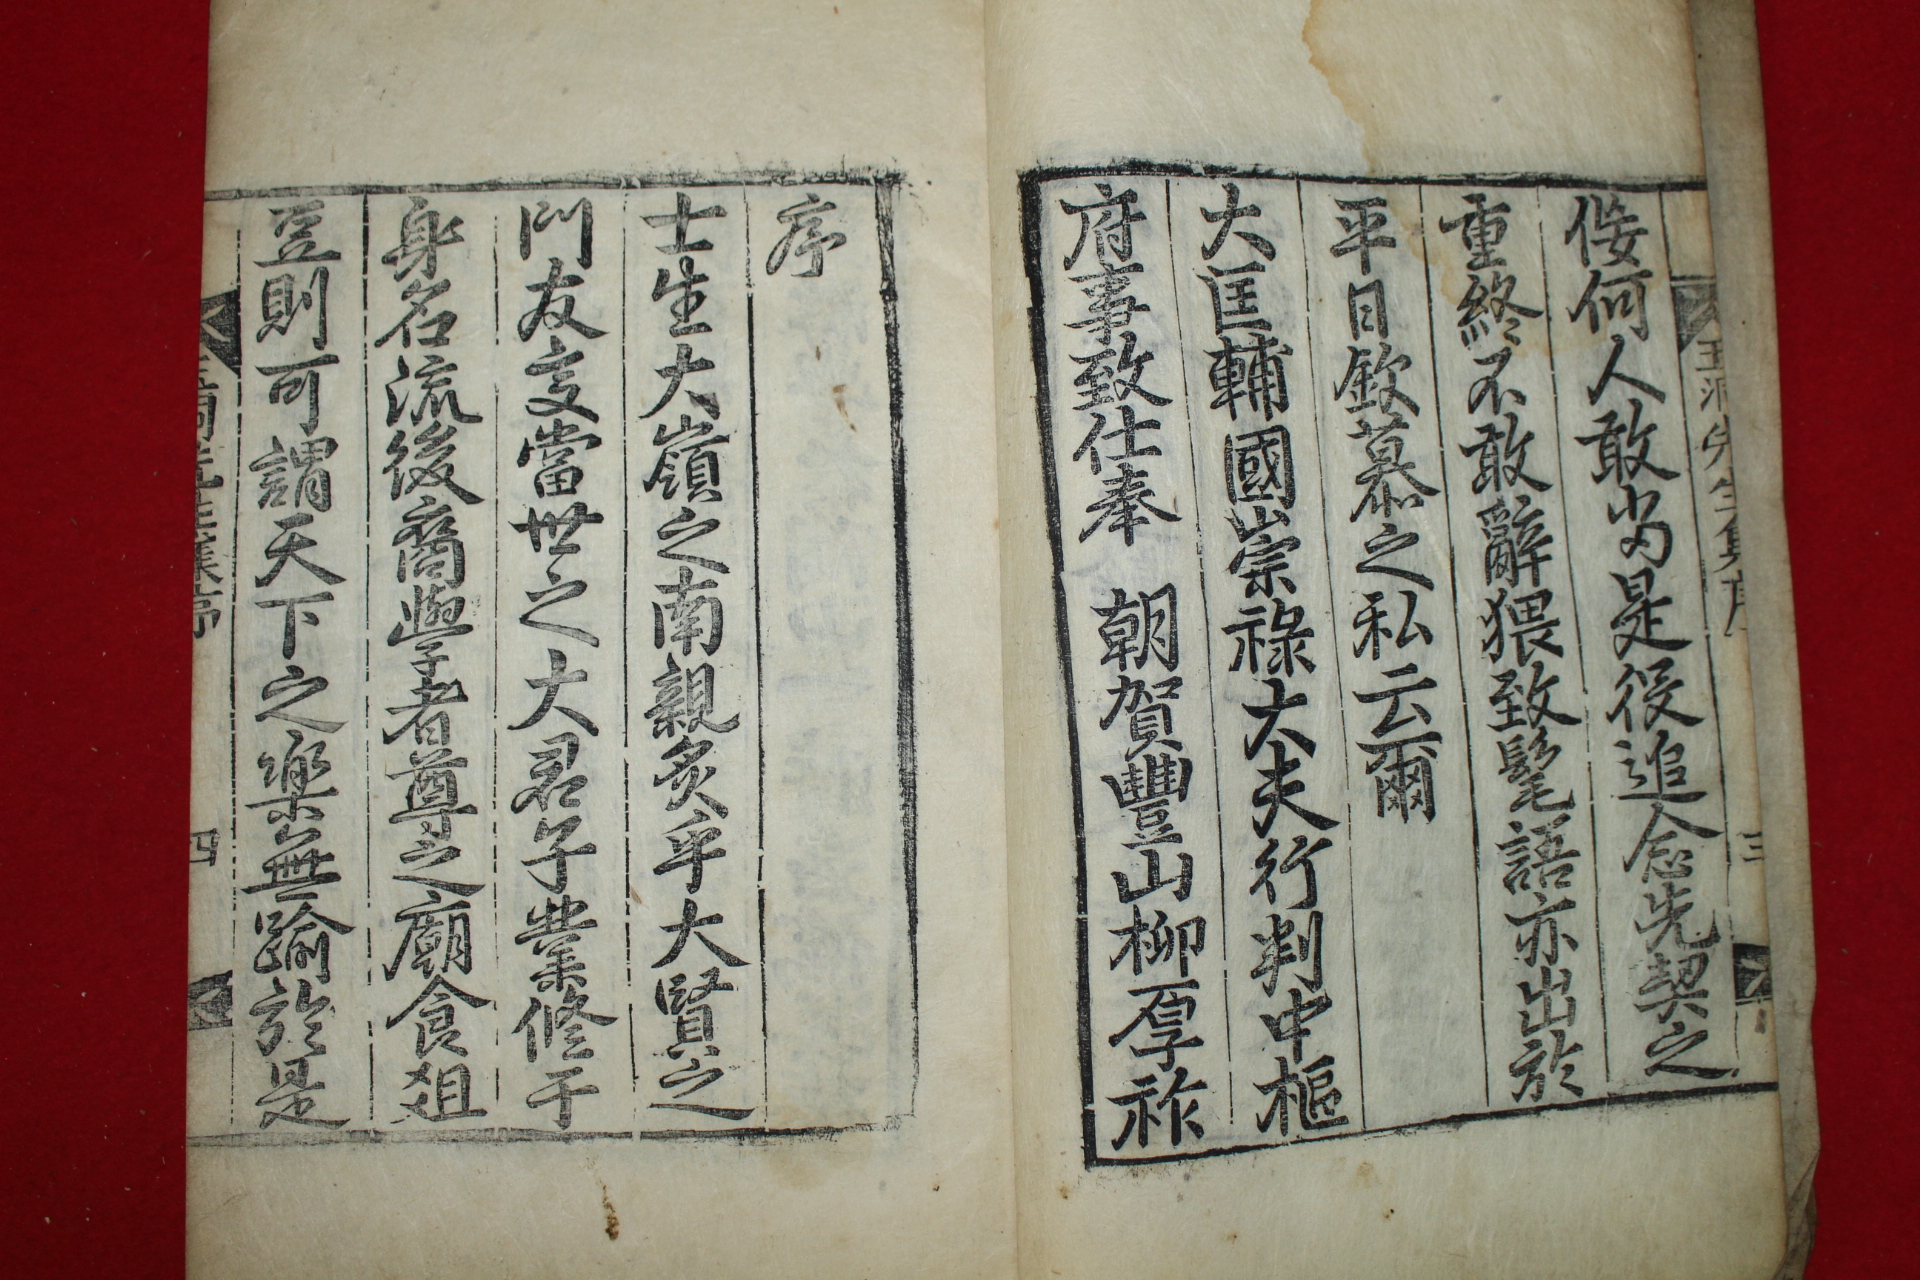 玉洞先生集序
三
倭何人敢當是役追念先契之
重終不敢辭猥致髦語亦出於
平日欽慕之私云爾
大匡輔國崇祿大夫行判中樞
府事致仕奉 朝賀豐山柳厚祚
序
士生大嶺之南親炙乎大賢之
門友交當世之大君子業修于
身名流後裔學者尊之廟食俎
豆則可謂天下之樂無踰於是
玉洞先生集序
四